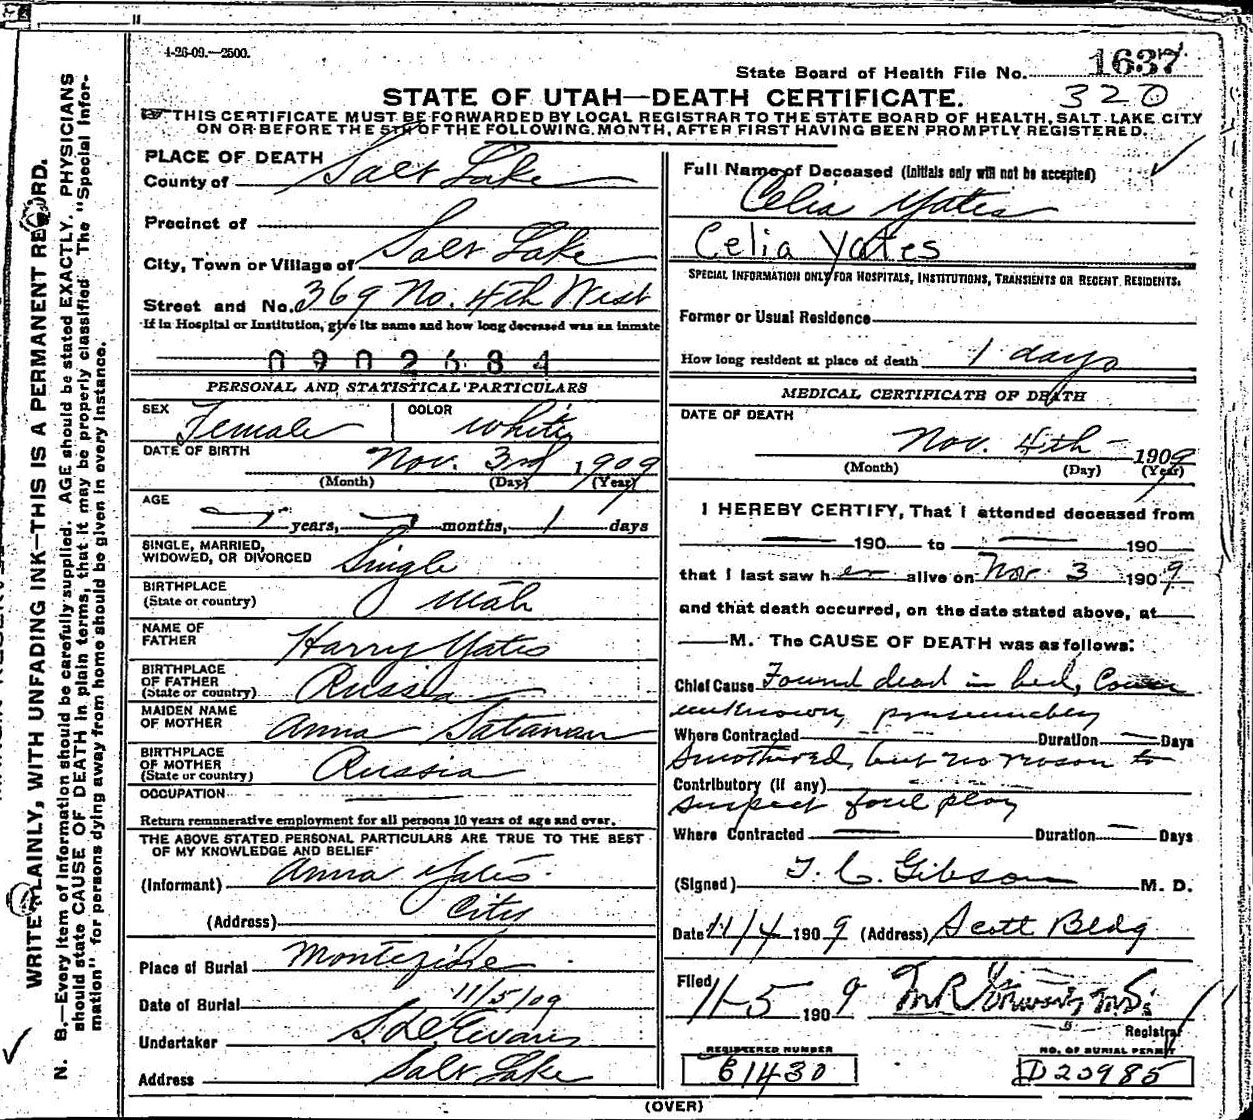 4-26-09.—2500.
State Board of Health File No. 1637
320
STATE OF UTAH—DEATH CERTIFICATE.
THIS CERTIFICATE MUST BE FORWARDED BY LOCAL REGISTRAR TO THE STATE BOARD OF HEALTH, SALT LAKE CITY
ON OR BEFORE THE 5TH OF THE FOLLOWING MONTH, AFTER FIRST HAVING BEEN PROMPTLY REGISTERED.
WRITE PLAINLY, WITH UNFADING INK—THIS IS A PERMANENT RECORD.
N. B.—Every item of information should be carefully supplied. AGE should be stated EXACTLY. PHYSICIANS
should state CAUSE OF DEATH in plain terms, that it may be properly classified. The "Special Infor-
mation" for persons dying away from home should be given in every instance.
PLACE OF DEATH
County of Salt Lake
Precinct of
City, Town or Village of Salt Lake
Street and No. 369 No. 4th West
If in Hospital or Institution, give its name and how long deceased was an inmate
0902684
PERSONAL AND STATISTICAL PARTICULARS
SEX Female COLOR white
DATE OF BIRTH Nov. 3rd 1909
(Month) (Day) (Year)
AGE
years, months, 1 days
SINGLE, MARRIED,
WIDOWED, OR DIVORCED Single
BIRTHPLACE
(State or country) Utah
NAME OF
FATHER Harry Yates
BIRTHPLACE
OF FATHER
(State or country) Russia
MAIDEN NAME
OF MOTHER Anna
BIRTHPLACE
OF MOTHER
(State or country) Russia
OCCUPATION
Return remunerative employment for all persons 10 years of age and over.
THE ABOVE STATED PERSONAL PARTICULARS ARE TRUE TO THE BEST
OF MY KNOWLEDGE AND BELIEF
(Informant) Anna Yates.
(Address) City
Place of Burial Montefiore
Date of Burial 11/5/09
Undertaker S. D. Evans
Address Salt Lake
Full Name of Deceased (Initials only will not be accepted)
Celia Yates
Celia Yates
SPECIAL INFORMATION ONLY FOR HOSPITALS, INSTITUTIONS, TRANSIENTS OR RECENT RESIDENTS.
Former or Usual Residence
How long resident at place of death 1 days
MEDICAL CERTIFICATE OF DEATH
DATE OF DEATH
Nov. 4th 1909
(Month) (Day) (Year)
I HEREBY CERTIFY, That I attended deceased from
190 to 190
that I last saw her alive on Nov. 3 1909
and that death occurred, on the date stated above, at
M. The CAUSE OF DEATH was as follows:
Chief Cause Found dead in bed, Cause
unknown, presumabley
Where Contracted Duration Days
smothered, but no reason to
Contributory (if any)
suspect foul play
Where Contracted Duration Days
(Signed) T. C. Gibson M. D.
Date 11/4 1909 (Address) Scott Bldg
Filed 11-5 1909
Registrar
REGISTERED NUMBER
61430
NO. OF BURIAL PERMIT
D20985
(OVER)